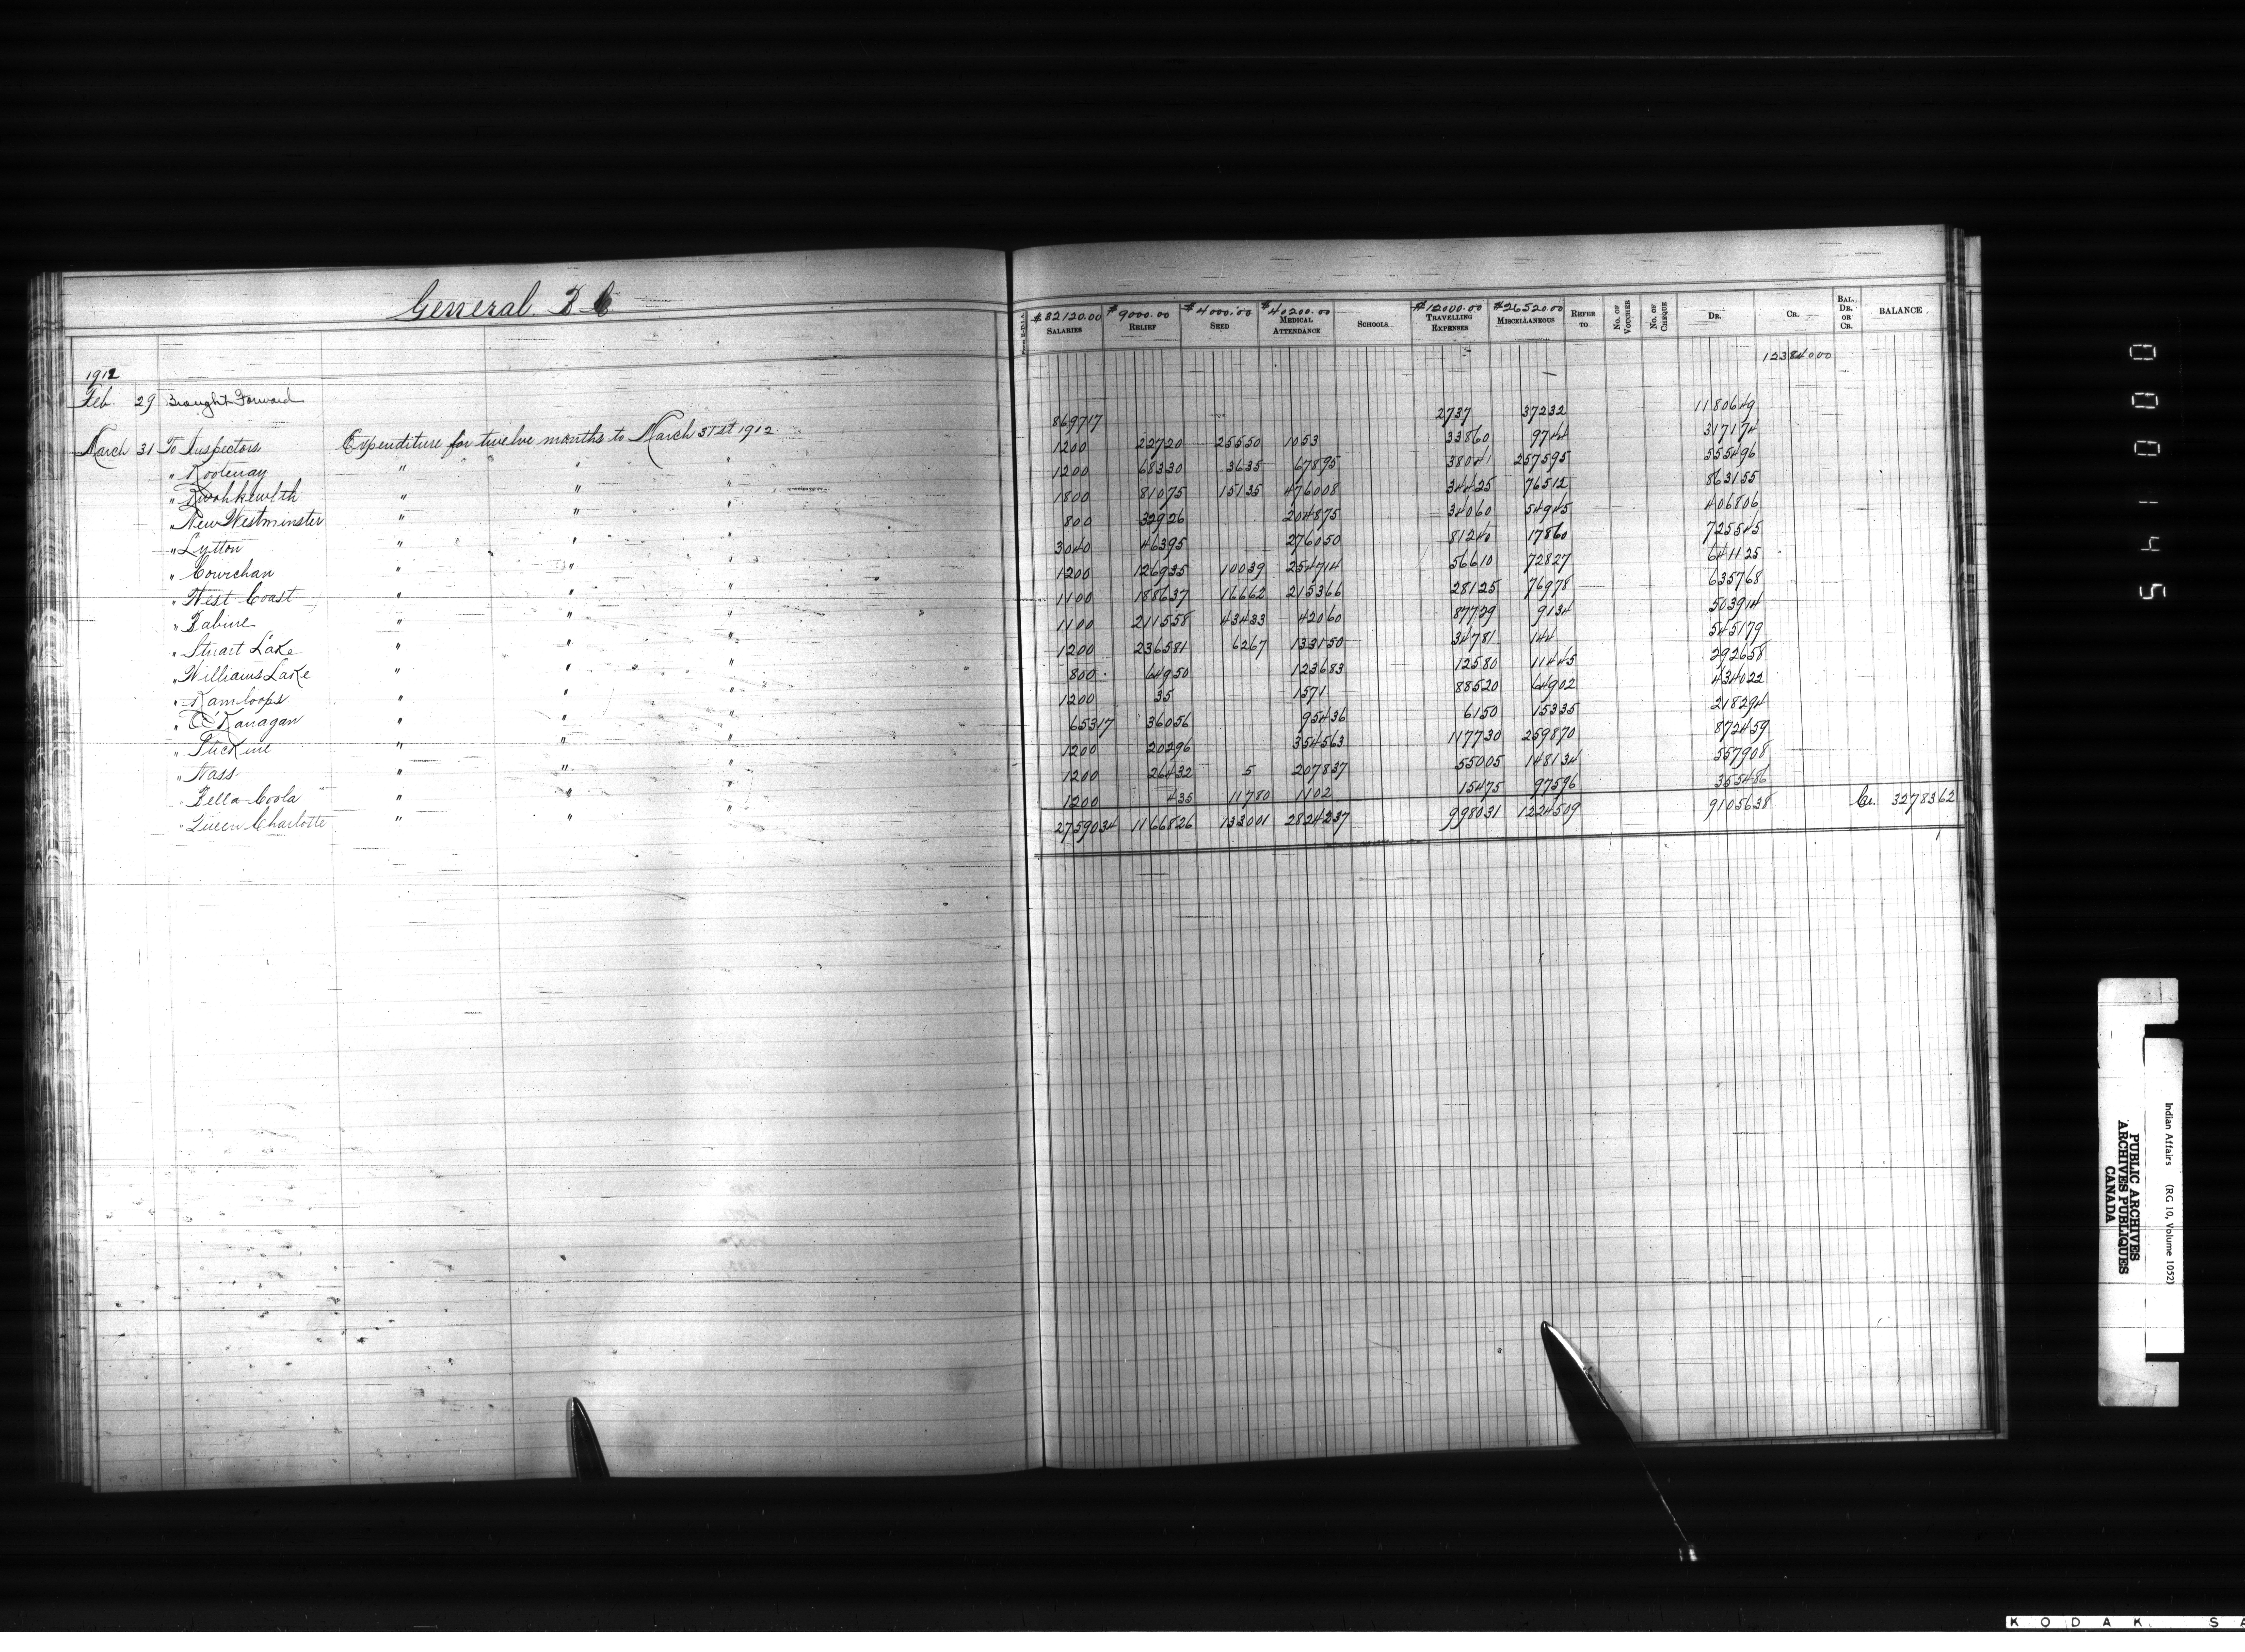 General B C
Form E.-D.I.A.
$82120.00 SALARIES
$9000.00 RELIEF
$4000.00 SEED
$40200.00 MEDICAL ATTENDANCE
SCHOOLS
$12000.00 TRAVELLING EXPENSES
$26520.00 MISCELLANEOUS
REFER TO
NO. OF VOUCHER
NO. OF CHEQUE
DR.
CR.
BAL. DR. OR CR.
BALANCE
1912
Feb. 29 Brought Forward 12384000
March 31 To Inspectors Expenditure for twelve months to March 31st 1912. 869717 2737 37232 1180649
" Kootenay " " " 1200 22720 25550 1053 33860 9744 317174
" Kwahkewlth " " " 1200 68330 3635 67895 38041 257595 555496
" New Westminster " " " 1800 81075 15135 476008 34425 76512 863155
" Lytton " " " 800 32926 204875 34060 54945 406806
" Cowichan " " " 3040 46395 276050 81240 17860 725545
" West Coast " " " 1200 126935 10039 254714 56610 72827 641125
" Babine " " " 1100 188637 16662 215366 28125 76978 635768
" Stuart Lake " " " 1100 211558 43433 42060 87729 9134 503914
" Williams Lake " " " 1200 236581 6267 133150 34781 144 545179
" Kamloops " " " 800 64950 123683 12580 11445 292658
" O'Kanagan " " " 1200 35 1571 88520 64902 434022
" Stickine " " " 65317 36056 95436 6150 15335 218294
" Nass " " " 1200 20296 354563 117730 259870 872459
" Bella Coola " " " 1200 26432 5 207837 55005 148134 557908
" Queen Charlotte " " " 1200 435 11780 1102 15475 97596 355486
2759034 1166826 133001 2824237 998031 1224509 9105638 Cr. 3278362
000145
Indian Affairs (RG 10, Volume 1052)
PUBLIC ARCHIVES
ARCHIVES PUBLIQUES
CANADA
KODAK SA